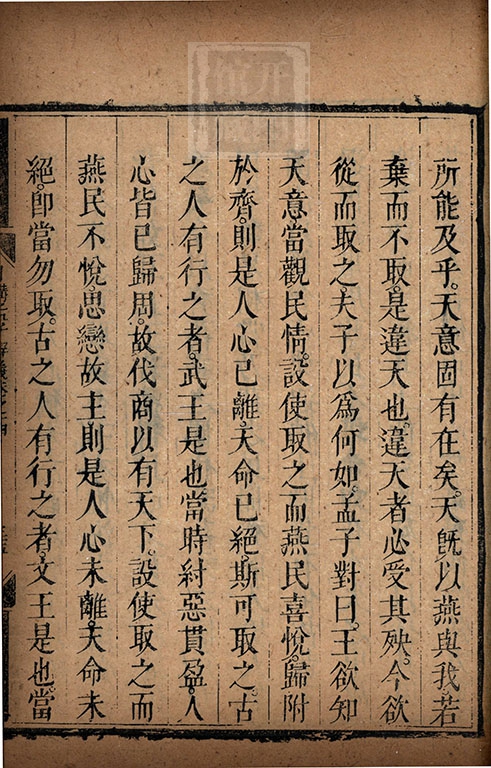 所能及乎。天意固有在矣。天旣以燕與我。若
棄而不取。是違天也。違天者必受其殃。今欲
從而取之。夫子以爲何如。孟子對曰。王欲知
天意。當觀民情。設使取之而燕民喜悅。歸附
於齊。則是人心已離。天命已絕。斯可取之。古
之人有行之者。武王是也。當時紂惡貫盈。人
心皆已歸周。故伐商以有天下。設使取之而
燕民不悅。思戀故主。則是人心未離。天命未
絕。卽當勿取。古之人有行之者。文王是也。當